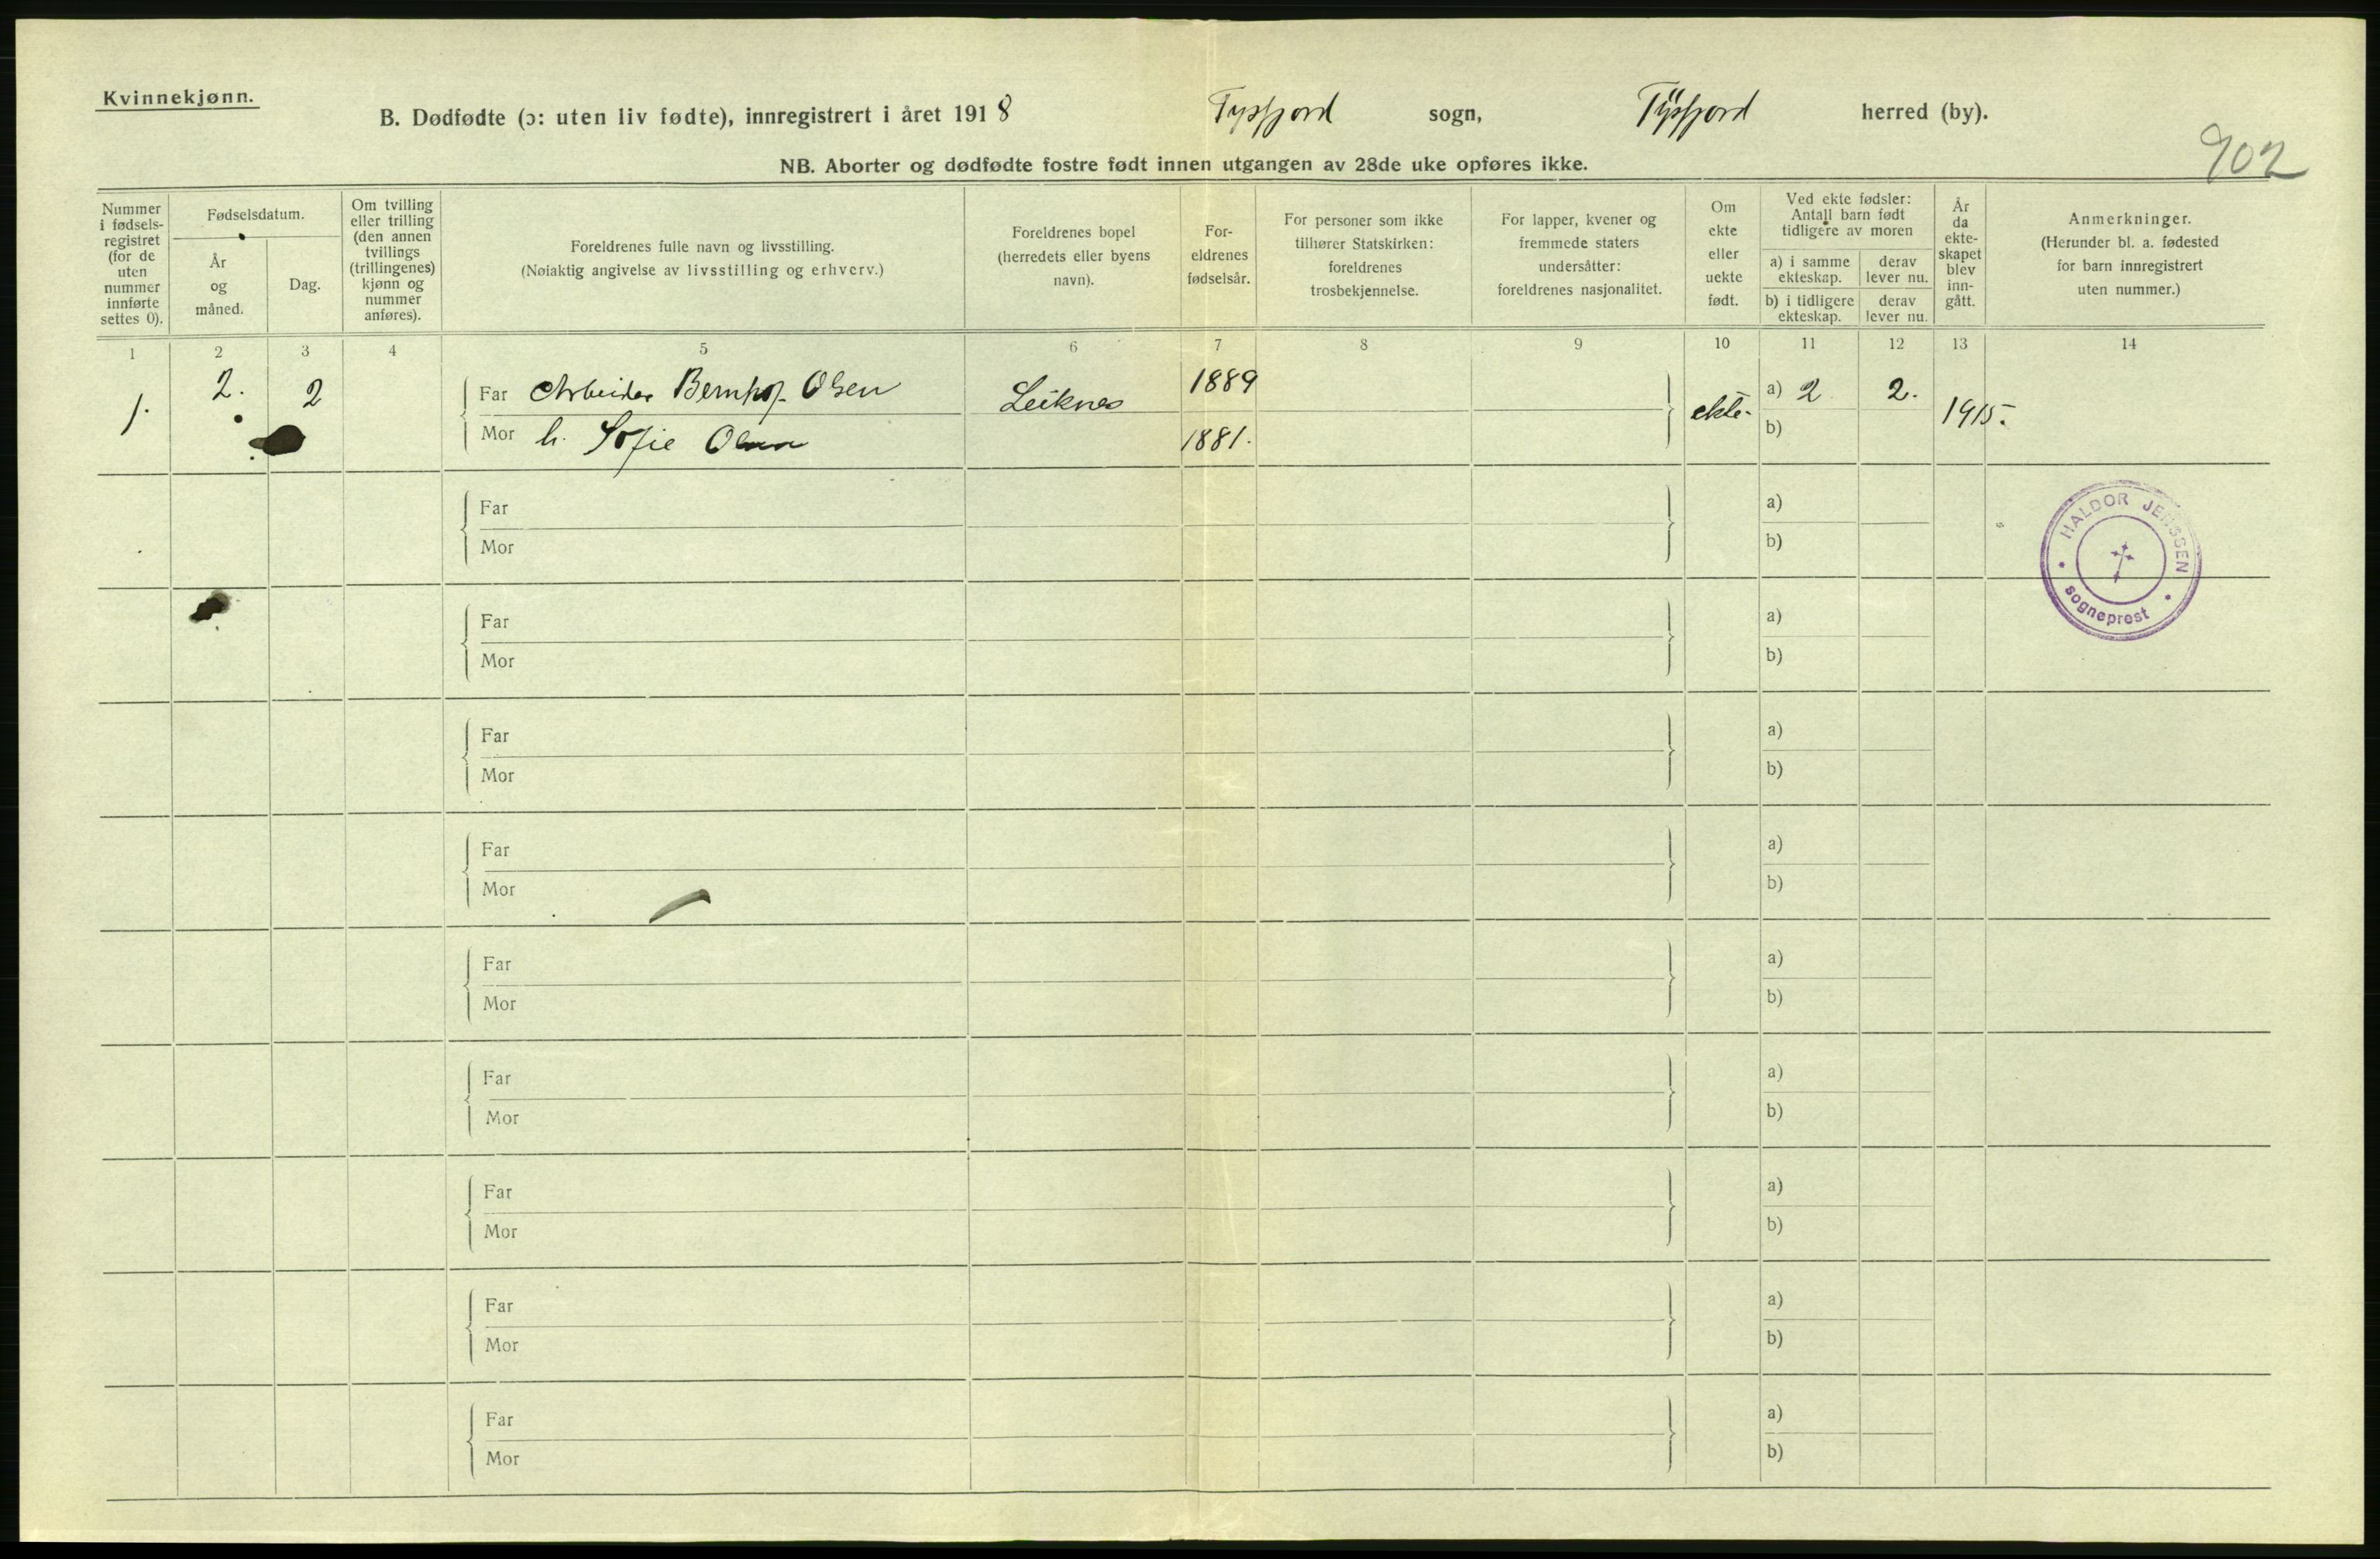 Kvinnekjønn.
B. Dødfødte (ɔ: uten liv fødte), innregistrert i året 1918 Tysfjord sogn, Tysfjord herred (by).
902
NB. Aborter og dødfødte fostre født innen utgangen av 28de uke opføres ikke.
Nummer
i fødsels-
registret
(for de
uten
nummer
innførte
settes 0).
Fødselsdatum.
År
og
måned.
Dag.
Om tvilling
eller trilling
(den annen
tvillings
(trillingenes)
kjønn og
nummer
anføres).
Foreldrenes fulle navn og livsstilling.
(Nøiaktig angivelse av livsstilling og erhverv.)
Foreldrenes bopel
(herredets eller byens
navn).
For-
eldrenes
fødselsår.
For personer som ikke
tilhører Statskirken:
foreldrenes
trosbekjennelse.
For lapper, kvener og
fremmede staters
undersåtter:
foreldrenes nasjonalitet.
Om
ekte
eller
uekte
født.
Ved ekte fødsler:
Antall barn født
tidligere av moren
a) i samme
ekteskap.
derav
lever nu.
b) i tidligere
ekteskap.
derav
lever nu.
År
da
ekte-
skapet
blev
inn-
gått.
Anmerkninger.
(Herunder bl. a. fødested
for barn innregistrert
uten nummer.)
1 2 3 4 5 6 7 8 9 10 11 12 13 14
1. 2. 2 Far Arbeider Bernhof Olsen Leiknes 1889 ekte. a) 2 2. 1915.
Mor h. Sofie Olsen 1881. b)
Far a)
Mor b)
HALDOR JENSSEN
sogneprest
Far a)
Mor b)
Far a)
Mor b)
Far a)
Mor b)
Far a)
Mor b)
Far a)
Mor b)
Far a)
Mor b)
Far a)
Mor b)
Far a)
Mor b)